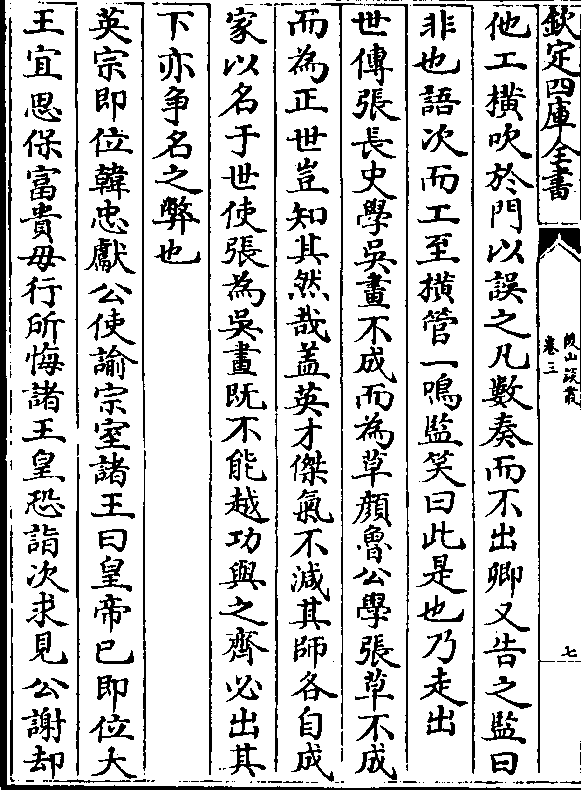 欽定四庫全書
後山談叢
卷三
七
他工橫吹於門以誤之凡數奏而不出卿又告之監曰
非也語次而工至橫管一鳴監笑曰此是也乃走出
世傳張長史學吳畫不成而為草顏魯公學張草不成
而為正世豈知其然哉蓋英才傑氣不減其師各自成
家以名于世使張為吳畫既不能越功與之齊必出其
下亦争名之弊也
英宗即位韓忠獻公使諭宗室諸王曰皇帝已即位大
王宜思保富貴毋行所悔諸王皇恐詣次求見公謝却